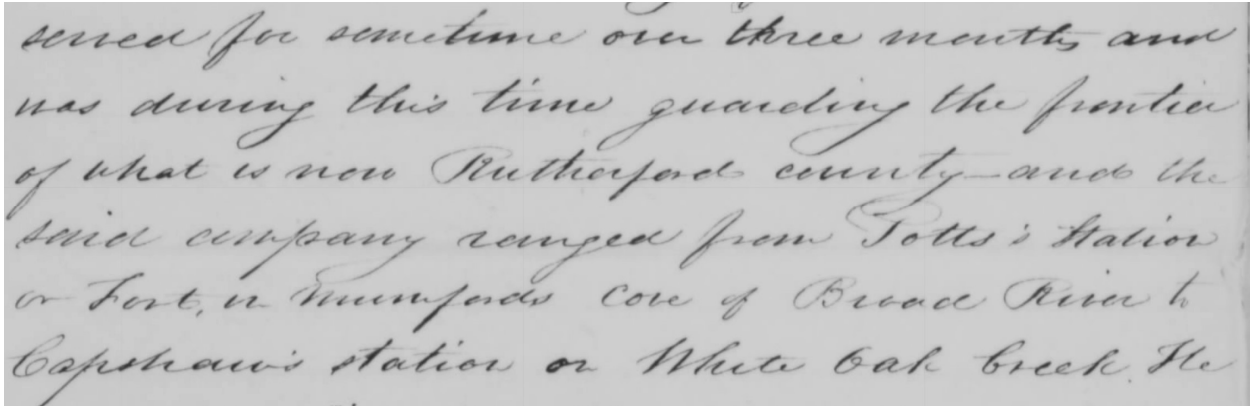 served for sometime over three months and
was during this time guarding the frontier
of what is now Rutherford county – and the
said company ranged from Potts's Station
or Fort, in Mumfords Cove of Broad River to
Capshaw's station on White Oak Creek. He